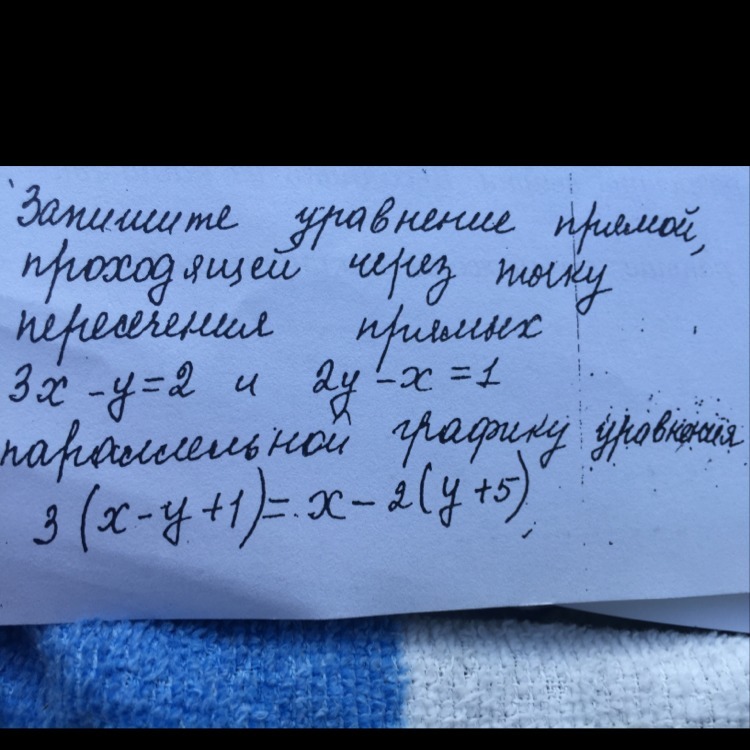 Запишите уравнение прямой,
проходящей через точку
пересечения прямых
3x - y = 2 и 2y - x = 1
параллельной графику уравнения
3(x - y + 1) = x - 2(y + 5)